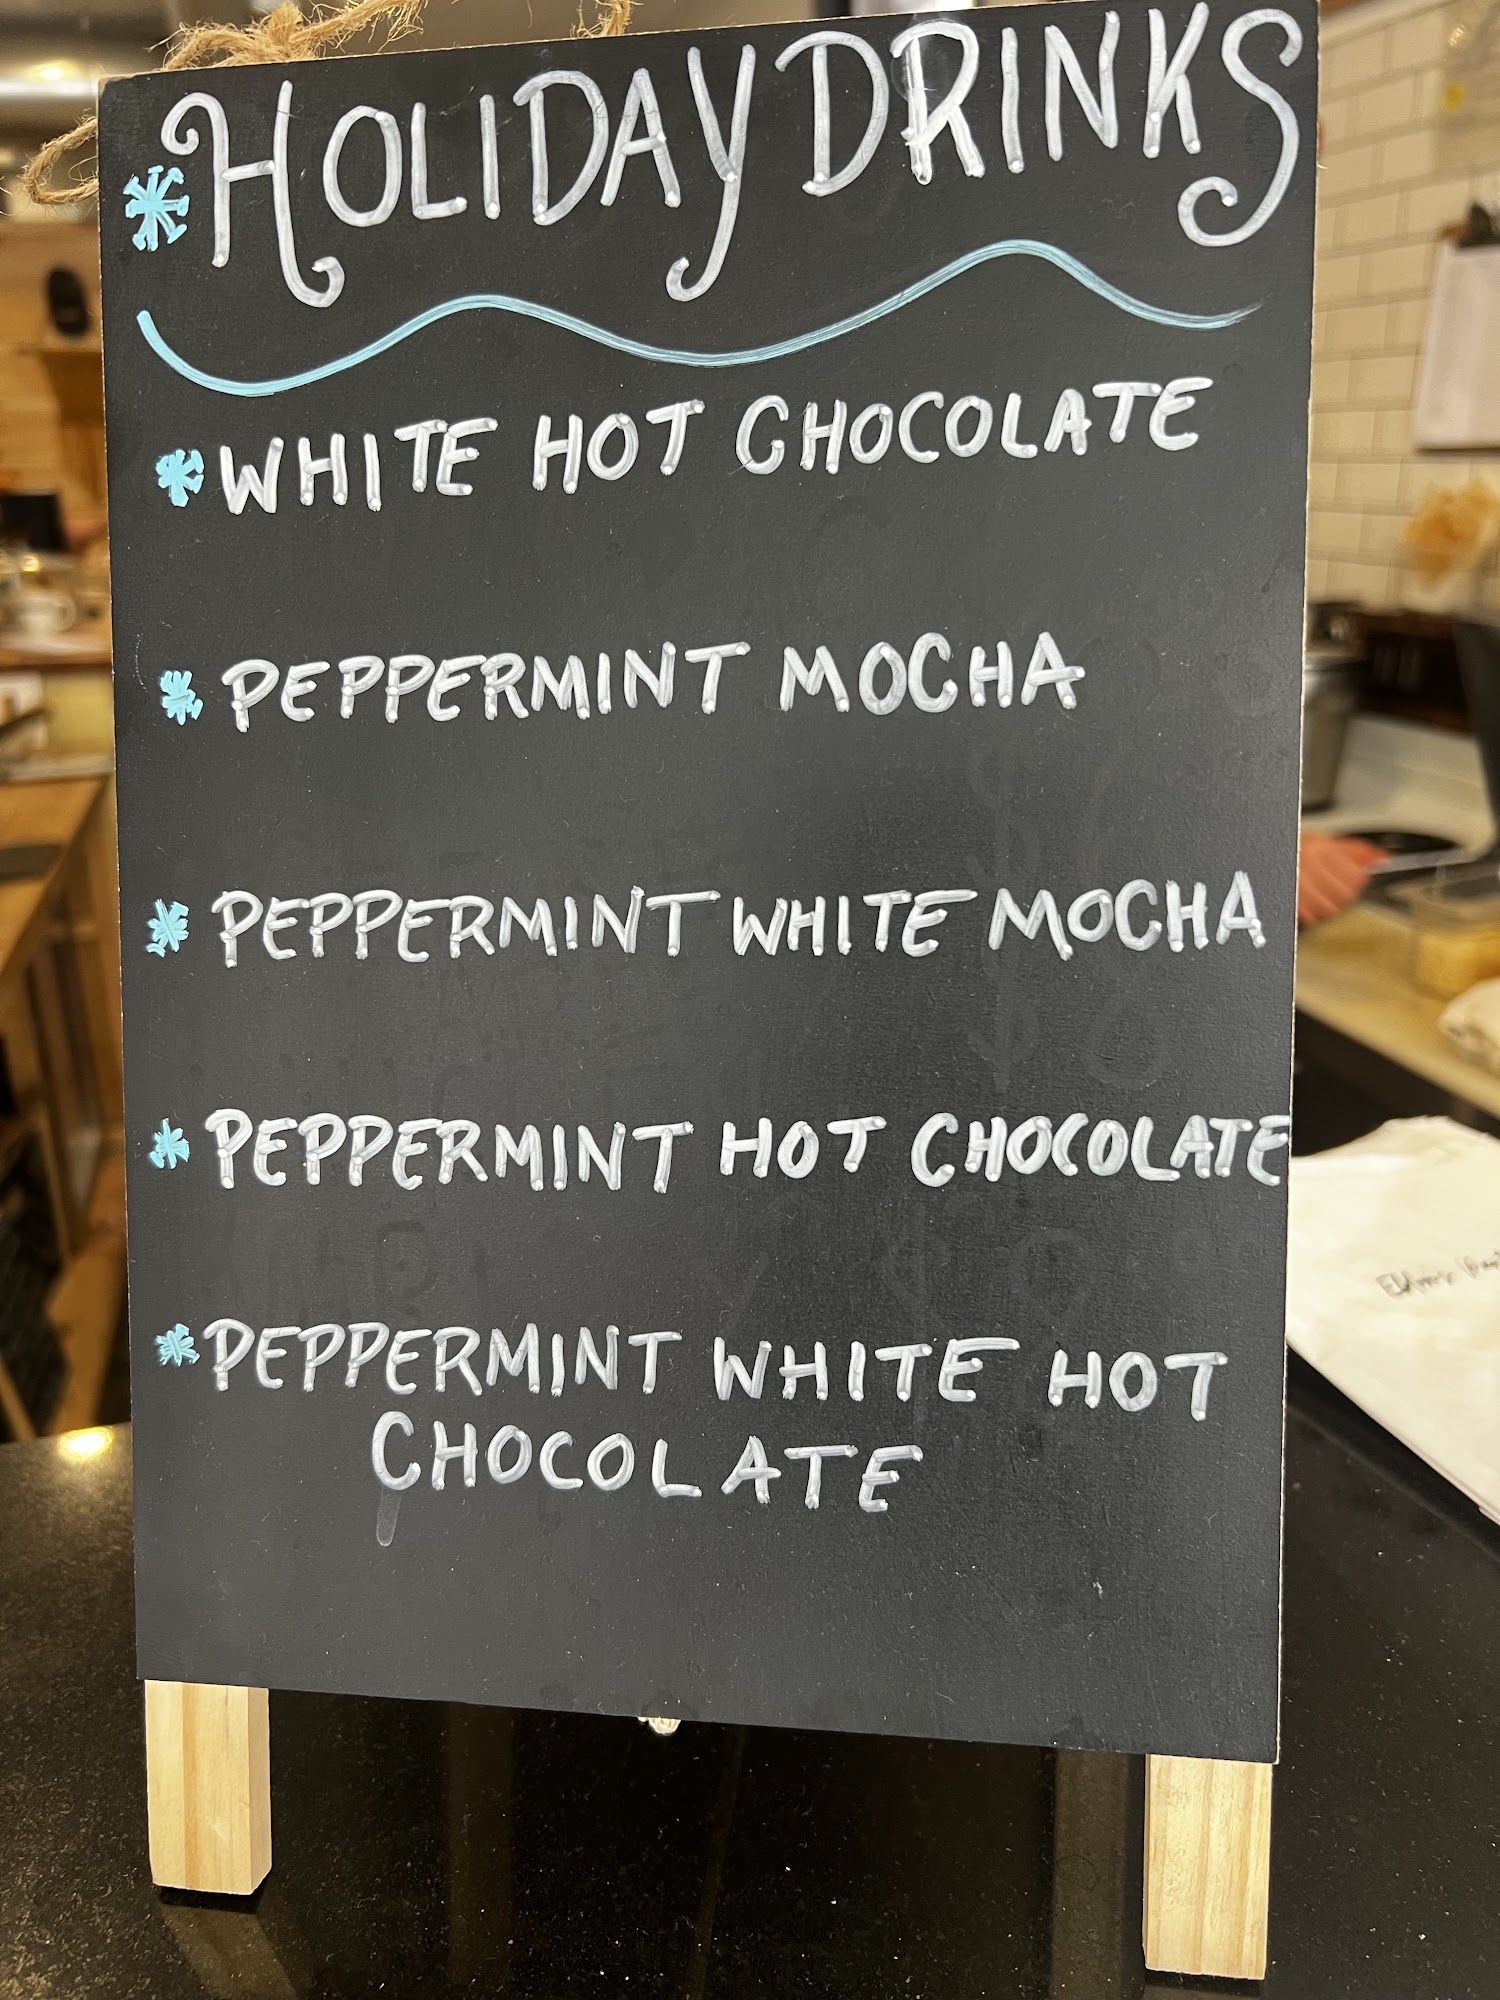 HOLIDAY DRINKS
WHITE HOT CHOCOLATE
PEPPERMINT MOCHA
PEPPERMINT WHITE MOCHA
PEPPERMINT HOT CHOCOLATE
PEPPERMINT WHITE HOT
CHOCOLATE